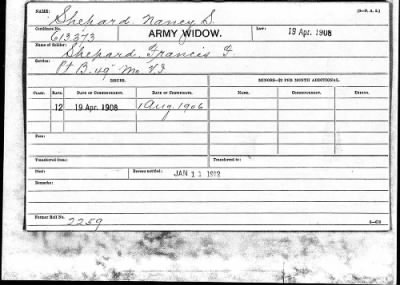 NAME: [3-P. A. 2.]
Shepard Nancy S.
Certificate No. Law:
613373 ARMY WIDOW. 19 Apr. 1908
Name of Soldier:
Shepard, Francis F.
Service:
Pt B. 49" Mo. V. I.
ISSUES. MINORS—$2 PER MONTH ADDITIONAL.
CLASS. RATE. DATE OF COMMENCEMENT. DATE OF CERTIFICATE. NAME. COMMENCEMENT. ENDING.
12 19 Apr. 1908
Fees:
Transferred from: Transferred to:
Died: Bureau notified: JAN 11 1912
Remarks:
Former Roll No.
2259